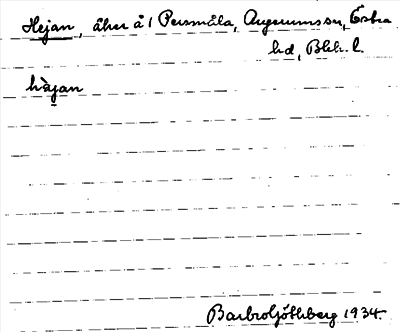 Hejan, åker å 1 Persmåla, Augerums sn, Östra
hd, Blek. l.
hæjan
Barbro Göthberg 1934.